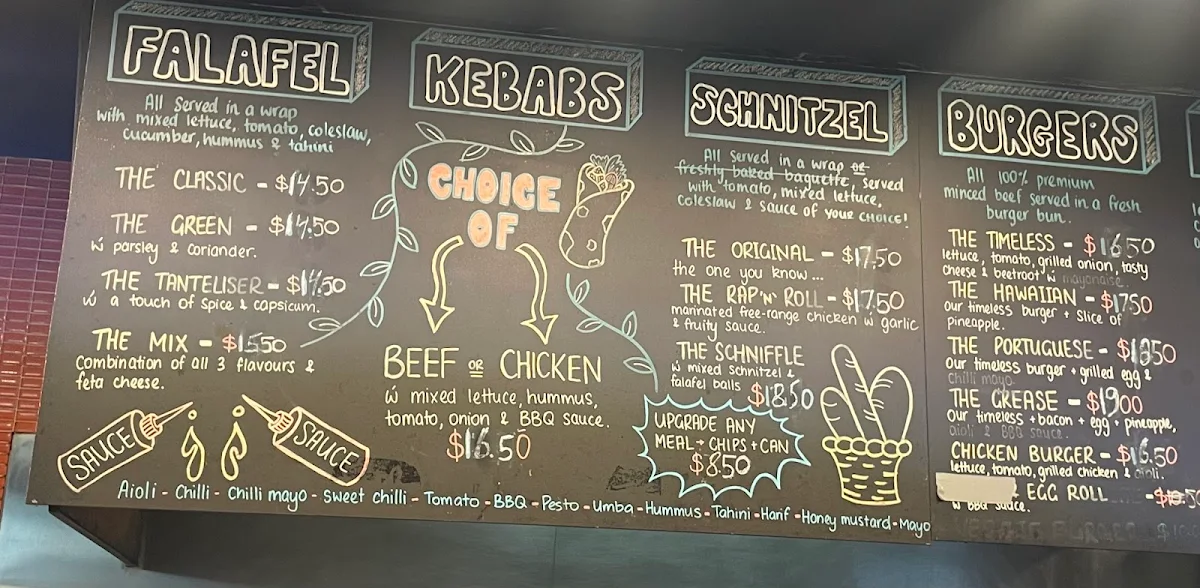 FALAFEL
All Served in a wrap
with mixed lettuce, tomato, coleslaw,
cucumber, hummus & tahini
THE CLASSIC - $14.50
THE GREEN - $14.50
w parsley & coriander.
THE TANTELISER - $14.50
w a touch of spice & capsicum.
THE MIX - $15.50
Combination of all 3 flavours &
feta cheese.
SAUCE
SAUCE
KEBABS
CHOICE
OF
BEEF OR CHICKEN
w mixed lettuce, hummus,
tomato, onion & BBQ sauce.
$16.50
SCHNITZEL
All Served in a wrap or
freshly baked baguette, served
with tomato, mixed lettuce,
coleslaw & sauce of your choice!
THE ORIGINAL - $17.50
the one you know...
THE RAP 'N' ROLL - $17.50
marinated free-range chicken w garlic
& fruity sauce.
THE SCHNIFFLE
w mixed schnitzel &
falafel balls $18.50
UPGRADE ANY
MEAL → CHIPS + CAN
$8.50
BURGERS
All 100% premium
minced beef served in a fresh
burger bun.
THE TIMELESS - $16.50
lettuce, tomato, grilled onion, tasty
cheese & beetroot w mayonaise.
THE HAWAIIAN - $17.50
our timeless burger + slice of
pineapple.
THE PORTUGUESE - $18.50
our timeless burger + grilled egg &
chilli mayo.
THE GREASE - $19.00
our timeless + bacon + egg + pineapple,
aioli & BBQ sauce.
CHICKEN BURGER - $16.50
lettuce, tomato, grilled chicken & aioli.
& EGG ROLL
w BBQ sauce.
Aioli - Chilli - Chilli mayo - Sweet chilli - Tomato - BBQ - Pesto - Umba - Hummus - Tahini - Harif - Honey mustard - Mayo